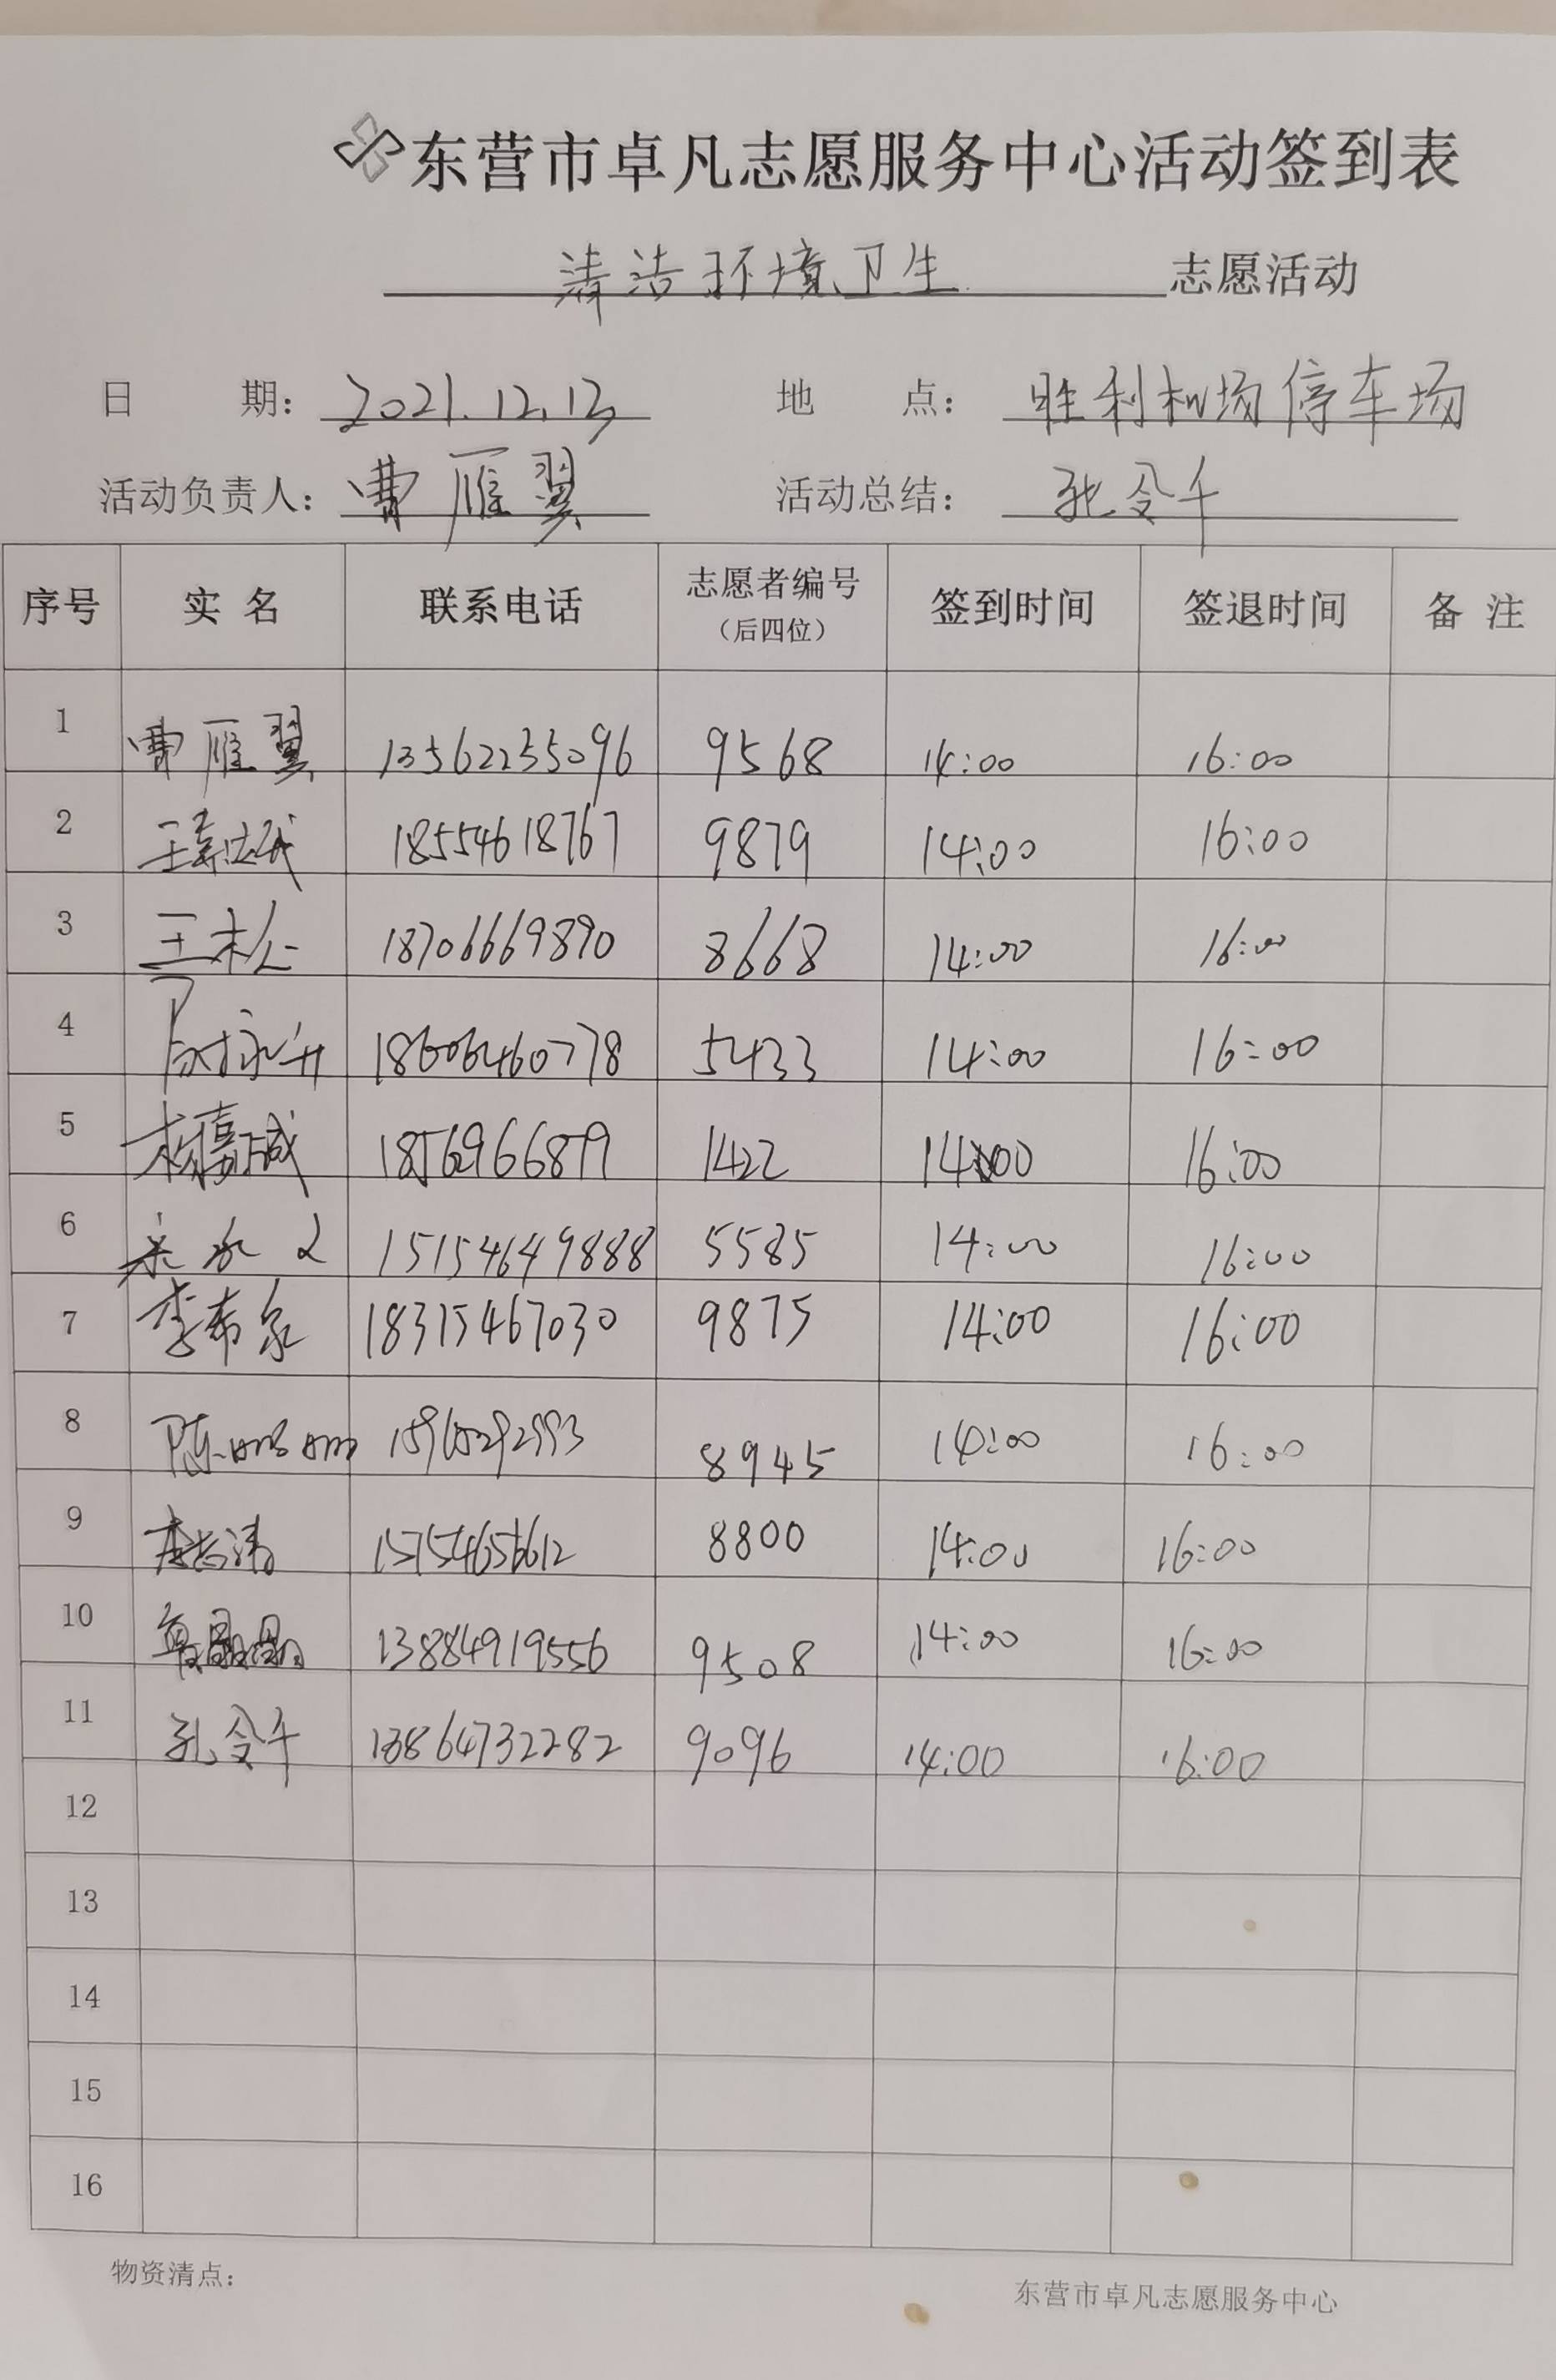 东营市卓凡志愿服务中心活动签到表
清洁环境卫生 志愿活动
日 期: 2021.12.13 地 点: 胜利机场停车场
活动负责人: 曹雁翼 活动总结: 孔令千
序号 实 名 联系电话 志愿者编号（后四位） 签到时间 签退时间 备 注
1 曹雁翼 13562235096 9568 14:00 16:00
2 18554618767 9879 14:00 16:00
3 王松 18706669890 8668 14:00 16:00
4 18606460778 5433 14:00 16:00
5 杨嘉诚 1422 14:00 16:00
6 15154649888 5585 14:00 16:00
7 李希泉 18315467030 9875 14:00 16:00
8 8945 14:00 16:00
9 8800 14:00 16:00
10 13884919556 9508 14:00 16:00
11 孔令千 13864732282 9096 14:00 16:00
12
13
14
15
16
物资清点: 东营市卓凡志愿服务中心